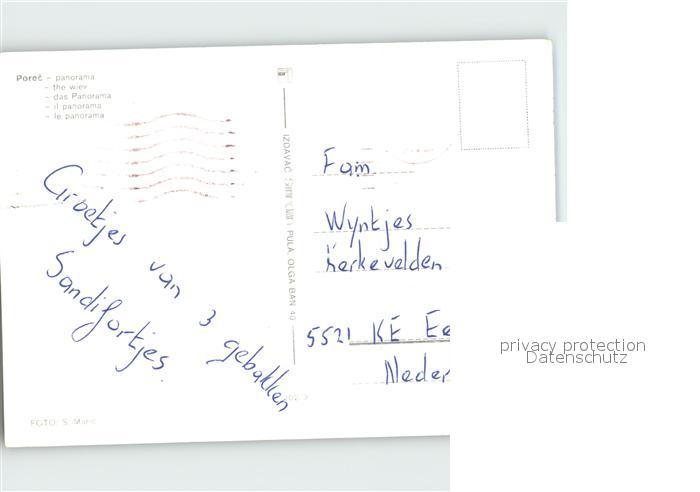 Poreč – panorama
– the wiev
– das Panorama
– il panorama
– le panorama
IZDAVAČ PULA, OLGA BAN 40
Groetjes van 3 gebakken
Sandifortjes.
Fam
Wyntjes
Kerkevelden
5521 KE Ee
Neder
FOTO: S. Marić
privacy protection
Datenschutz